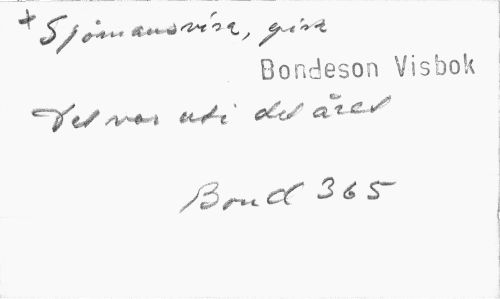 + Sjömansvisa, gick
Bondeson Visbok
Det var uti det året
Bond 365